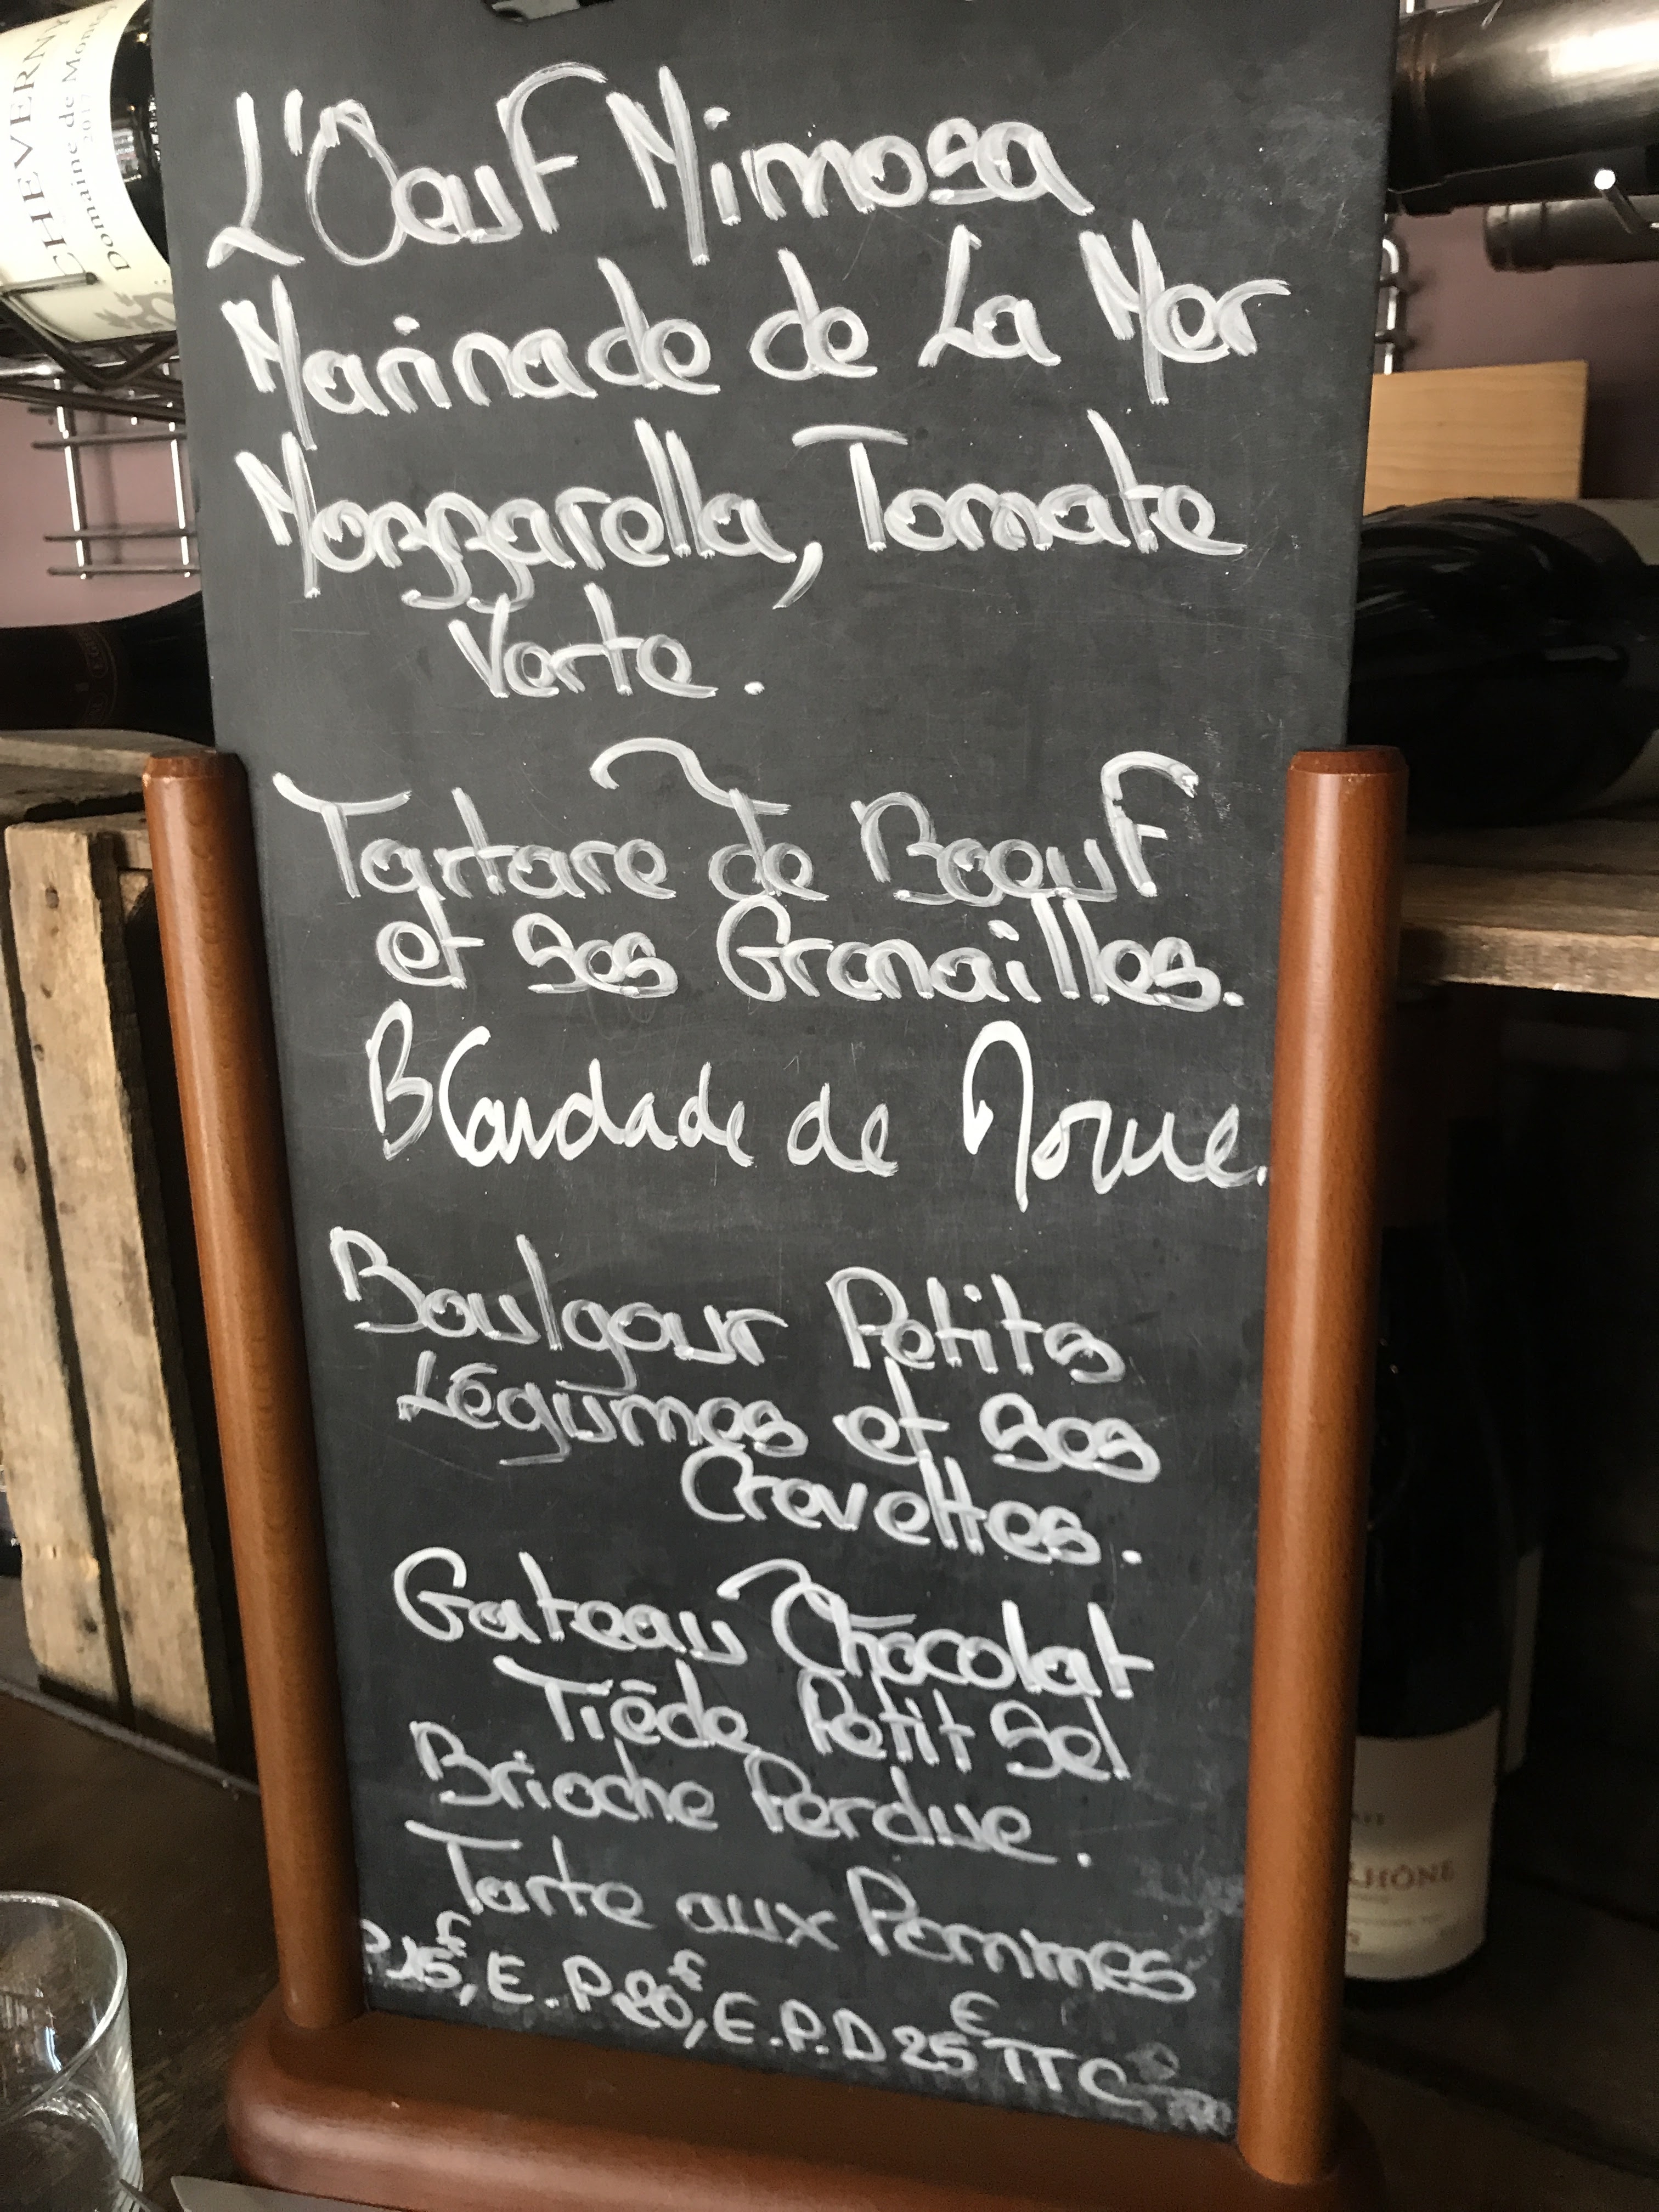 L'Oeuf Mimosa
Marinade de La Mer
Mozzarella, Tomate
Verte.
Tartare de Boeuf
et Ses Grenailles.
Brandade de Morue.
Boulgour Petits
Légumes et Ses
Crevettes.
Gateau Chocolat
Tiède Petit Sel
Brioche Perdue.
Tarte aux Pommes
P 15€, E.P 20€, E.P.D 25€ TTC
CHEVERNY
Domaine de
2017
RHÔNE